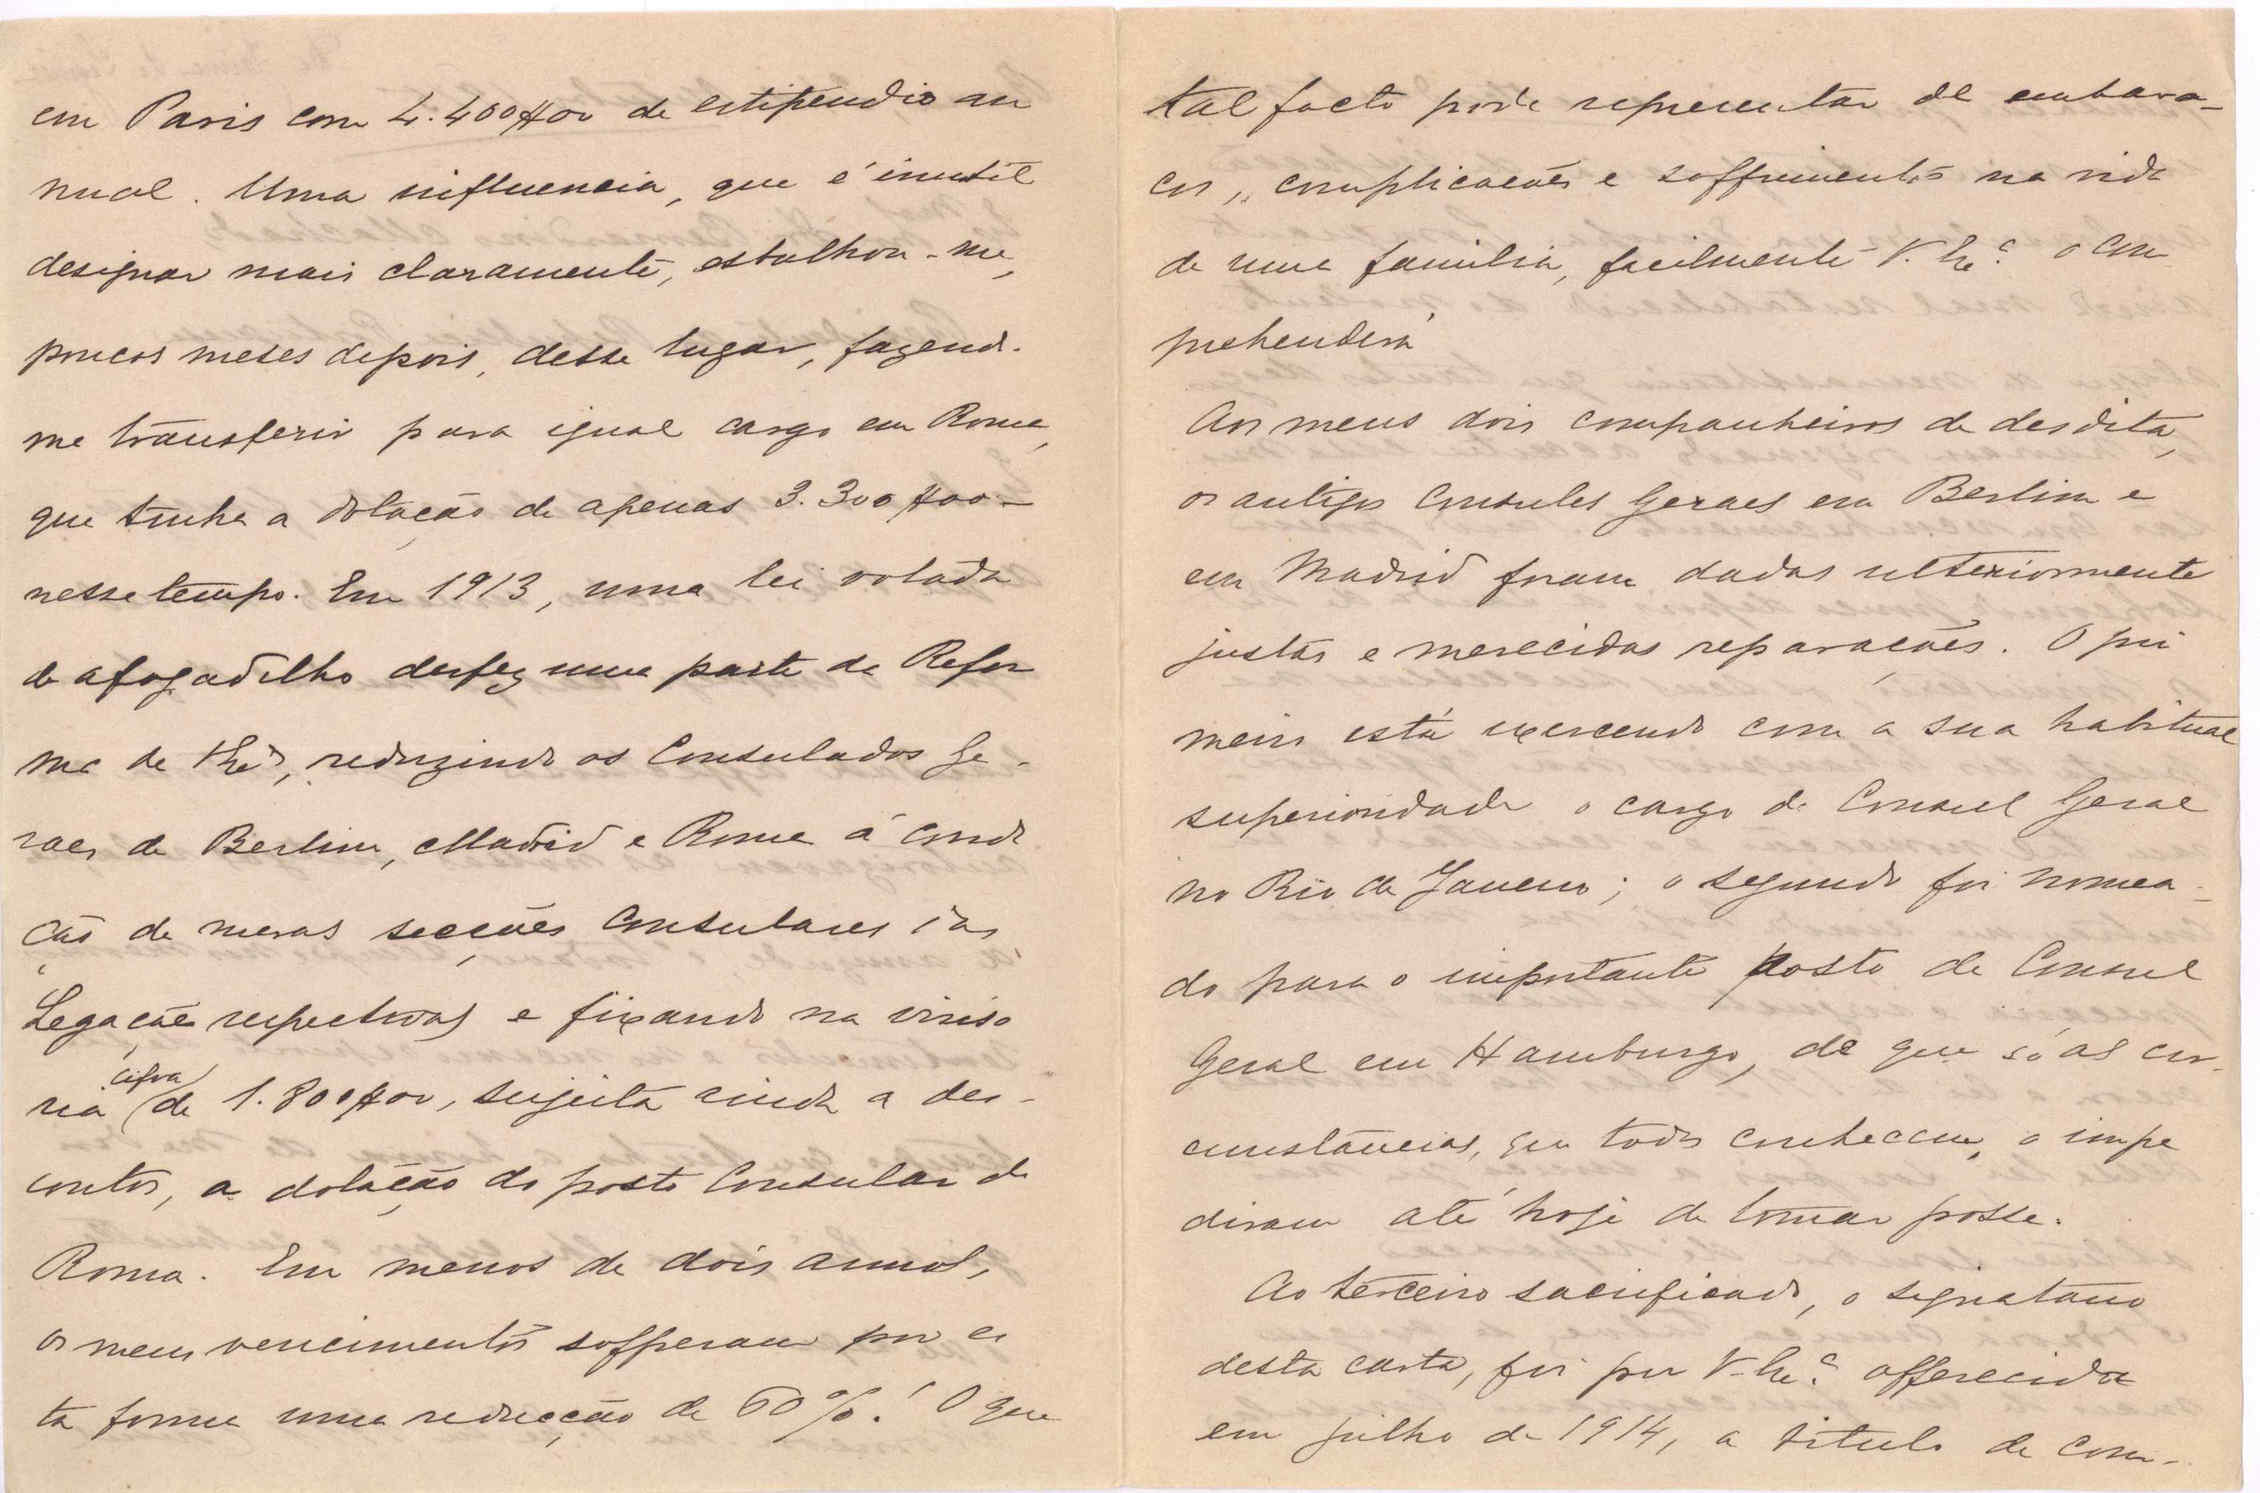 em Paris com 4.400$00 de estipendio an
nual. Uma influencia, que é inutil
designar mais claramente, esbulhou-me,
poucos meses depois, desse lugar, fazend.
me transferir para igual cargo em Roma,
que tinha a dotação de apenas 3.300$00 –
nesse tempo. Em 1913, uma lei votada
de afogadilho desfez uma parte da Refor
ma de V. Exª, reduzindo os Consulados Ge-
raes de Berlim, Madrid e Roma á condi
ção de meras secções consulares das
Legações respectivas e fixando na irriso
ria cifra de 1.800$00, sujeita ainda a des-
contos, a dotação do posto Consular de
Roma. Em menos de dois annos,
os meus vencimentos soffreram por es
ta forma uma reducção de 60%! O que
tal facto pode representar de embara-
ços, complicações e soffrimentos na vida
de uma familia, facilmente V. Exª o com
prehenderá
Aos meus dois companheiros de desdita,
os antigos Consules Geraes em Berlim e
em Madrid foram dadas ulteriormente
justas e merecidas reparações. O pri
meiro está exercendo com a sua habitual
superioridade o cargo de Consul Geral
no Rio de Janeiro; o segundo foi nomea-
do para o importante posto de Consul
Geral em Hamburgo, de que só as cir-
cunstancias, que todos conhecem, o impe
diram até hoje de tomar posse.
Ao terceiro sacrificado, o signatario
desta carta, foi por V. Exª offerecida
em julho de 1914, a titulo de com-